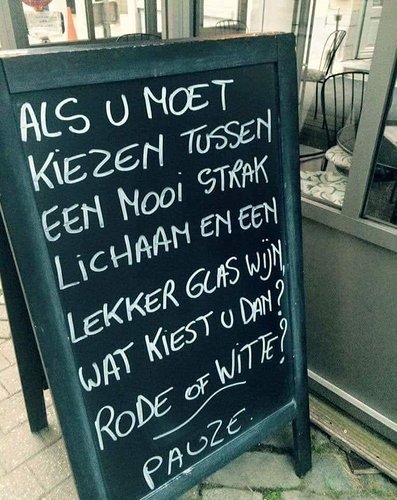 ALS U MOET
KIEZEN TUSSEN
EEN MOOI STRAK
LICHAAM EN EEN
LEKKER GLAS WIJN,
WAT KIEST U DAN?
RODE OF WITTE?
PAUZE.